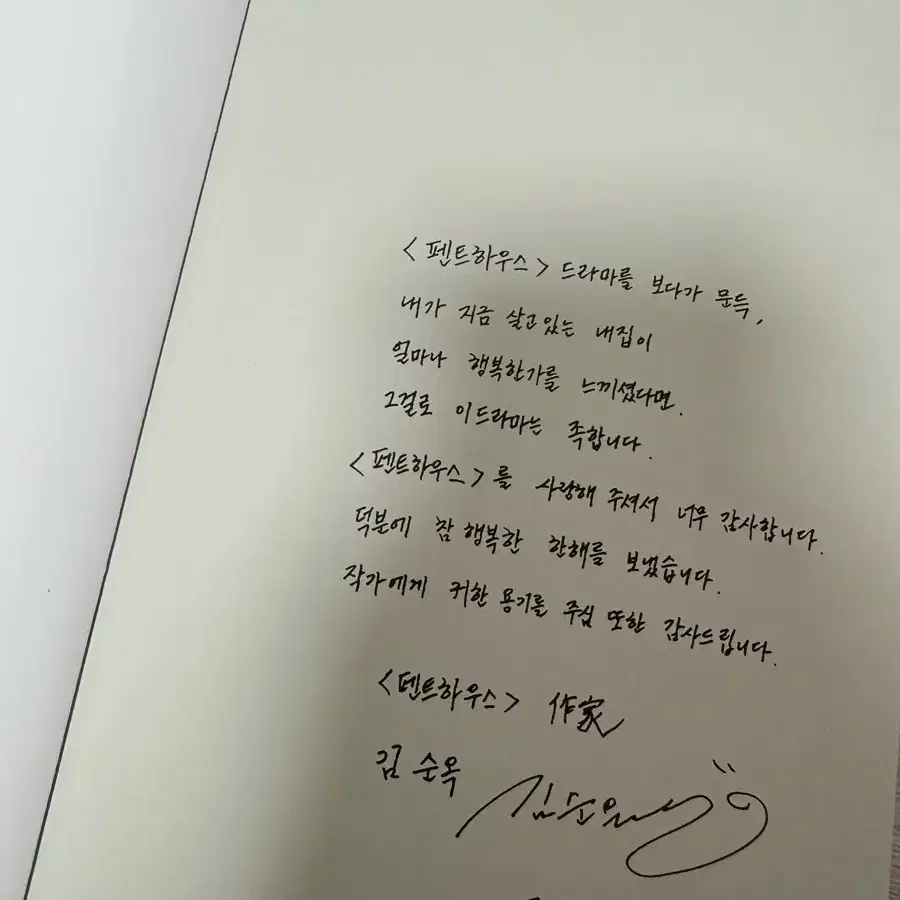 <펜트하우스> 드라마를 보다가 문득,
내가 지금 살고있는 내집이
얼마나 행복한가를 느끼셨다면.
그걸로 이드라마는 족합니다.
<펜트하우스>를 사랑해 주셔서 너무 감사합니다.
덕분에 참 행복한 한해를 보냈습니다.
작가에게 귀한 용기를 주심 또한 감사드립니다.
<펜트하우스> 作家
김순옥 김순옥